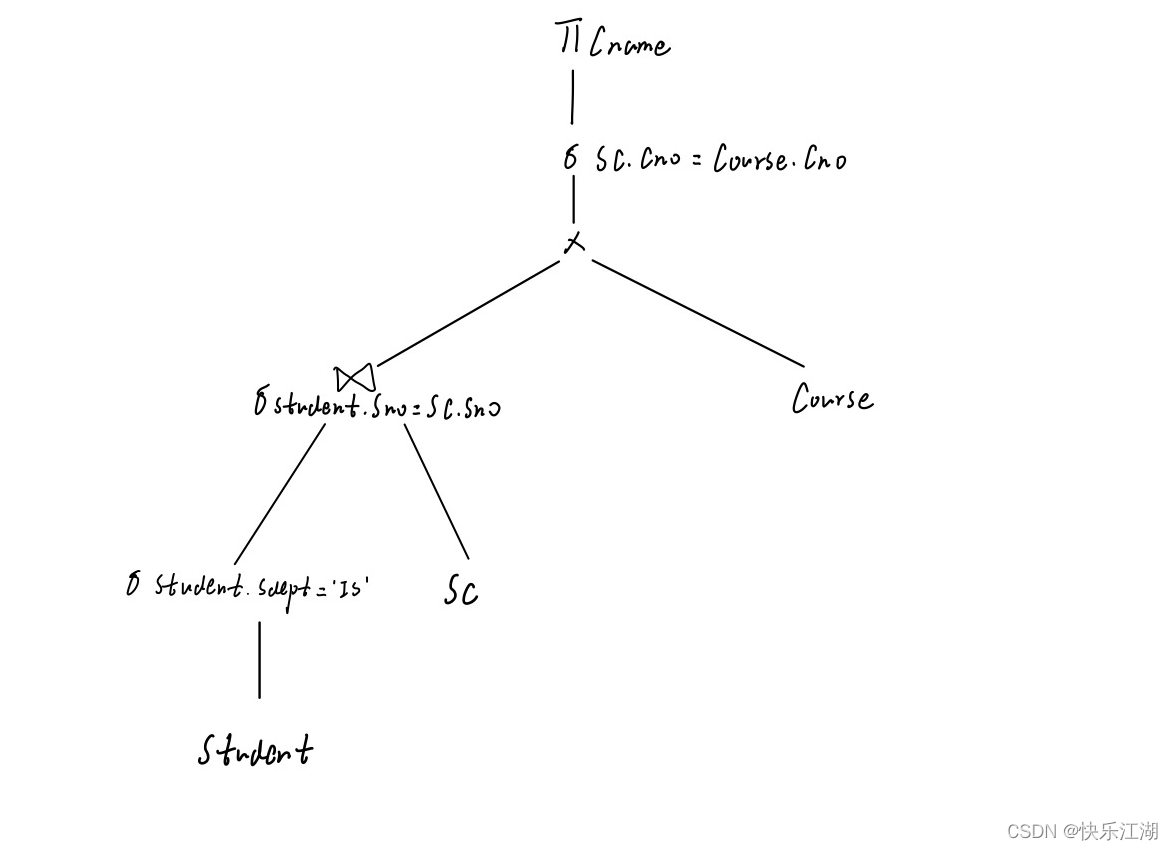 Π Cname
σ SC.Cno = Course.Cno
×
⋈
σ student.Sno = SC.Sno
Course
σ student.sdept = 'IS'
SC
Student
CSDN @快乐江湖